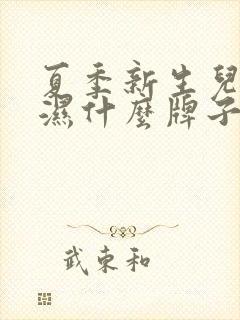 夏季新生兒
濕什麼牌子
武東和